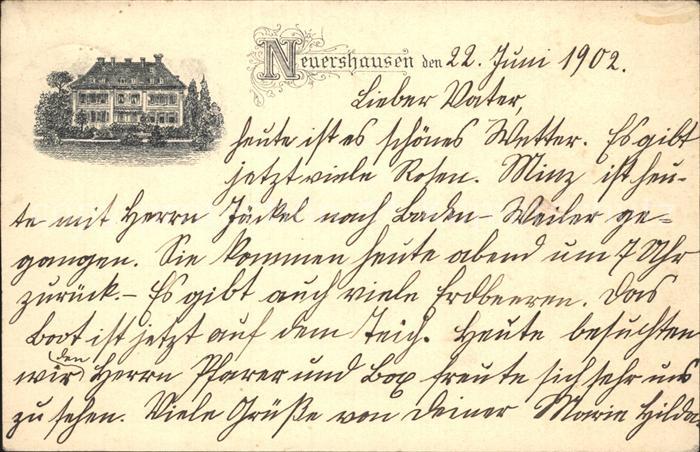 Neuershausen den 22. Juni 1902.
Lieber Vater,
heute ist es schönes Wetter. Es gibt
jetzt viele Rosen. Minz ist heu-
te mit Herrn Jäckel nach Baden-Weiler ge-
gangen. Sie kommen heute abend um 7 Uhr
zurück.- Es gibt auch viele Erdbeeren. Das
Boot ist jetzt auf dem Teich. Heute besuchten
wir den Herrn Pfarer und Box freute sich sehr uns
zu sehen. Viele Grüße von deiner Marie Hilda